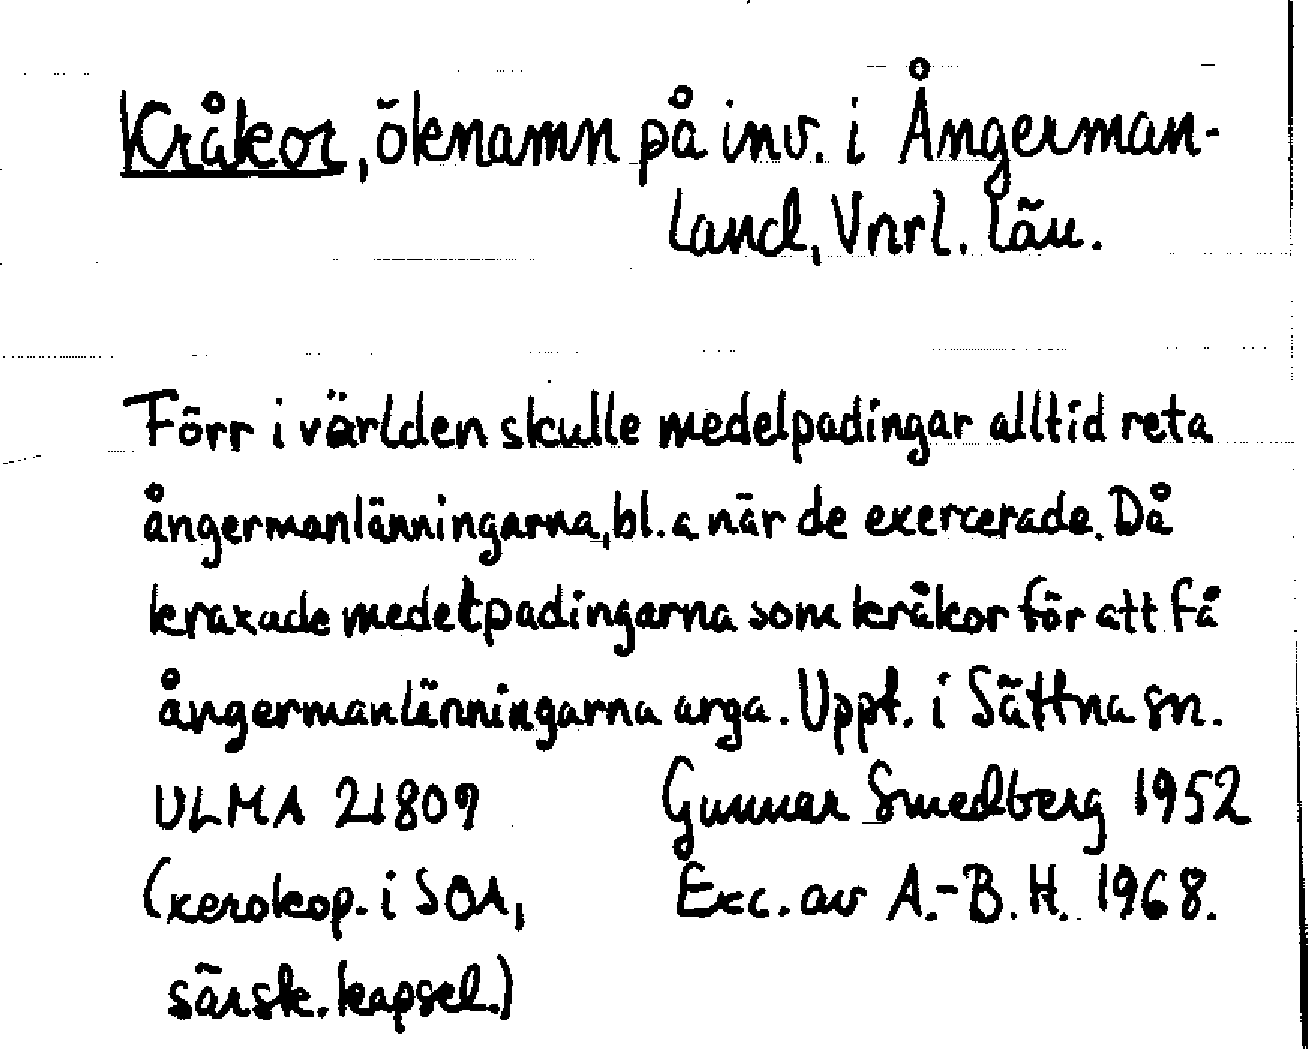 Kråkor, öknamn på inv. i Ångerman-
land, Vnrl. län.
Förr i världen skulle medelpadingar alltid reta
ångermanlänningarna, bl. a när de exercerade. Då
kraxade medelpadingarna som kråkor för att få
ångermanlänningarna arga. Uppt. i Sättna sn.
ULMA 21809 Gunnar Smedberg 1952
(xerokop. i SOA, Exc. av A.-B. H. 1968.
särsk. kapsel.)